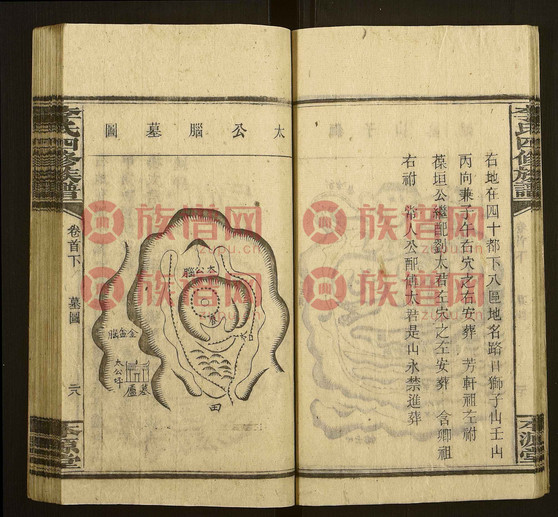 李氏四修族譜
本源堂
右地在四十都下八區地名路口獅子山壬山
丙向兼子午右穴之右安葬 芳軒祖左祔
葆垣公繼配劉太君左穴之左安葬 含卿祖
右祔 常人公配傅大君是山永禁進葬
太公腦墓圖
太公腦
金盆腦
太公坪
墓廬
田
李氏四修族譜
卷首下
墓圖
二八
本源堂
族谱网
族谱网
族谱网
族谱网